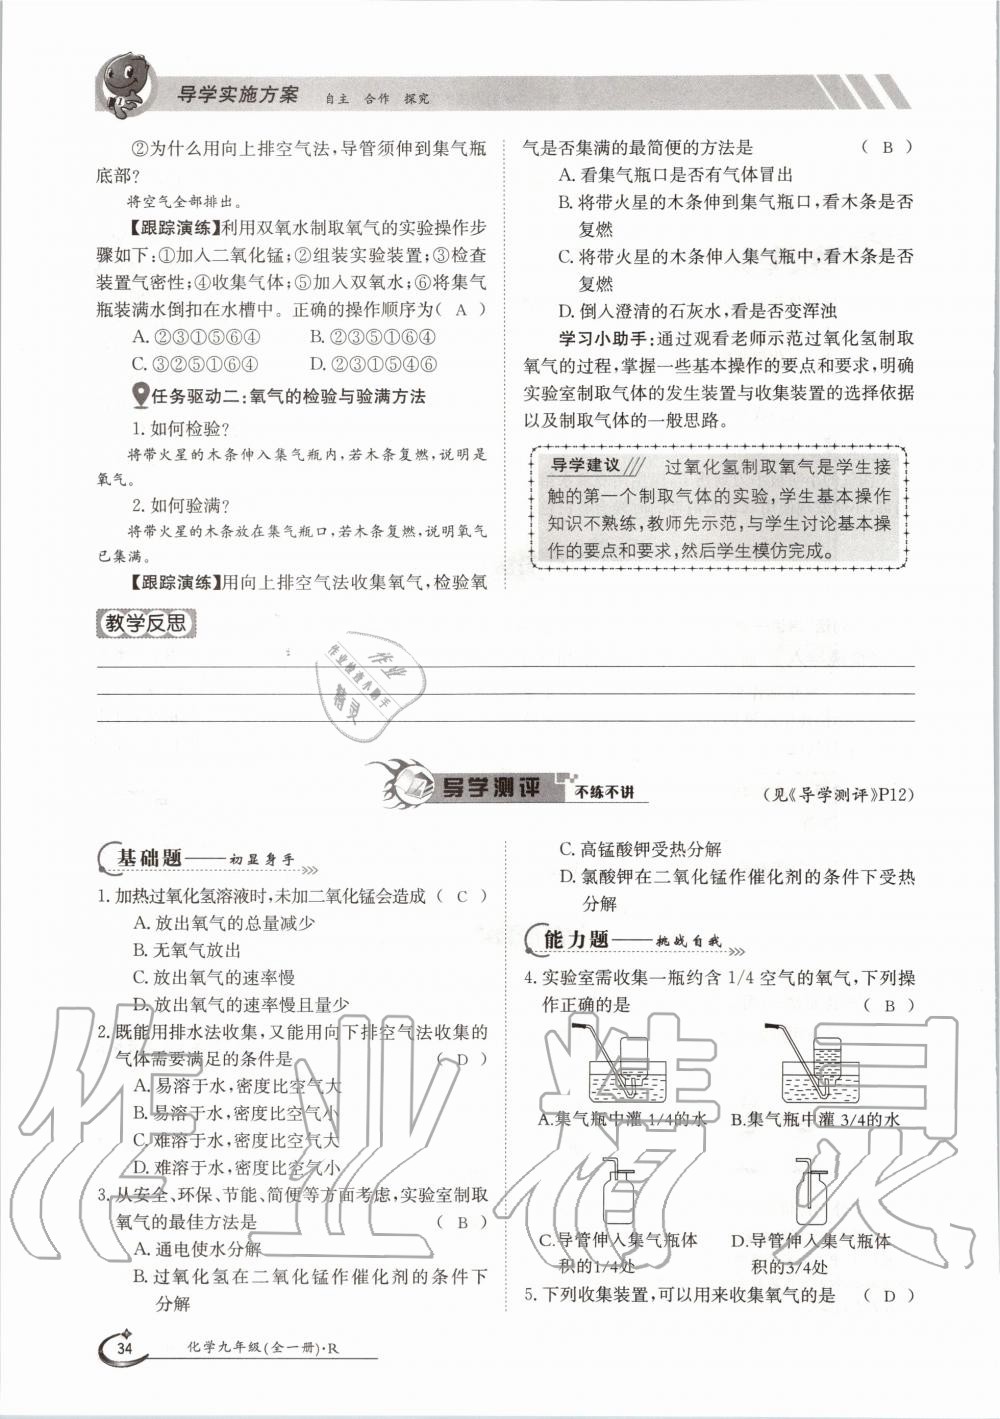 导学实施方案 自主 合作 探究
②为什么用向上排空气法,导管须伸到集气瓶
底部?
将空气全部排出。
【跟踪演练】利用双氧水制取氧气的实验操作步
骤如下:①加入二氧化锰;②组装实验装置;③检查
装置气密性;④收集气体;⑤加入双氧水;⑥将集气
瓶装满水倒扣在水槽中。正确的操作顺序为( A )
A.②③①⑤⑥④ B.②③⑤①⑥④
C.③②⑤①⑥④ D.②③①⑤④⑥
任务驱动二:氧气的检验与验满方法
1.如何检验?
将带火星的木条伸入集气瓶内,若木条复燃,说明是
氧气。
2.如何验满?
将带火星的木条放在集气瓶口,若木条复燃,说明氧气
已集满。
【跟踪演练】用向上排空气法收集氧气,检验氧
气是否集满的最简便的方法是 ( B )
A.看集气瓶口是否有气体冒出
B.将带火星的木条伸到集气瓶口,看木条是否
复燃
C.将带火星的木条伸入集气瓶中,看木条是否
复燃
D.倒入澄清的石灰水,看是否变浑浊
学习小助手:通过观看老师示范过氧化氢制取
氧气的过程,掌握一些基本操作的要点和要求,明确
实验室制取气体的发生装置与收集装置的选择依据
以及制取气体的一般思路。
导学建议 过氧化氢制取氧气是学生接
触的第一个制取气体的实验,学生基本操作
知识不熟练,教师先示范,与学生讨论基本操
作的要点和要求,然后学生模仿完成。
教学反思
作业
作业检查小助手
精灵
导学测评 不练不讲
(见《导学测评》P12)
基础题——初显身手
1.加热过氧化氢溶液时,未加二氧化锰会造成( C )
A.放出氧气的总量减少
B.无氧气放出
C.放出氧气的速率慢
D.放出氧气的速率慢且量少
2.既能用排水法收集,又能用向下排空气法收集的
气体需要满足的条件是 ( D )
A.易溶于水,密度比空气大
B.易溶于水,密度比空气小
C.难溶于水,密度比空气大
D.难溶于水,密度比空气小
3.从安全、环保、节能、简便等方面考虑,实验室制取
氧气的最佳方法是 ( B )
A.通电使水分解
B.过氧化氢在二氧化锰作催化剂的条件下
分解
C.高锰酸钾受热分解
D.氯酸钾在二氧化锰作催化剂的条件下受热
分解
能力题——挑战自我
4.实验室需收集一瓶约含1/4空气的氧气,下列操
作正确的是 ( B )
A.集气瓶中灌1/4的水 B.集气瓶中灌3/4的水
C.导管伸入集气瓶体 D.导管伸入集气瓶体
积的1/4处 积的3/4处
5.下列收集装置,可以用来收集氧气的是 ( D )
34 化学九年级(全一册)·R
作业精灵